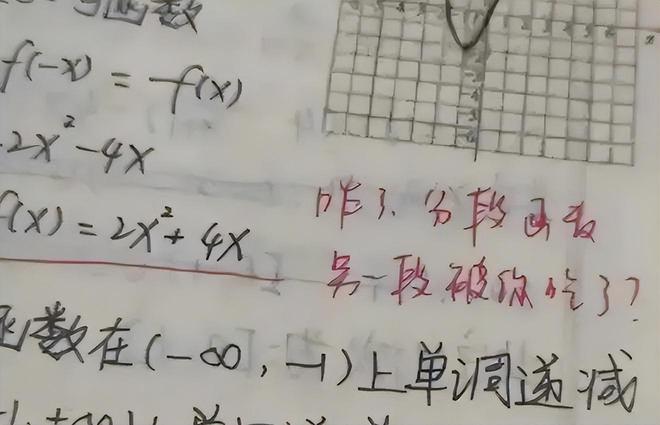 函数
f(-x) = -f(x)
2x²-4x
(x) = 2x²+4x
咋了.分段函数
另一段被你吃了?
函数在(-∞,-1)上单调递减